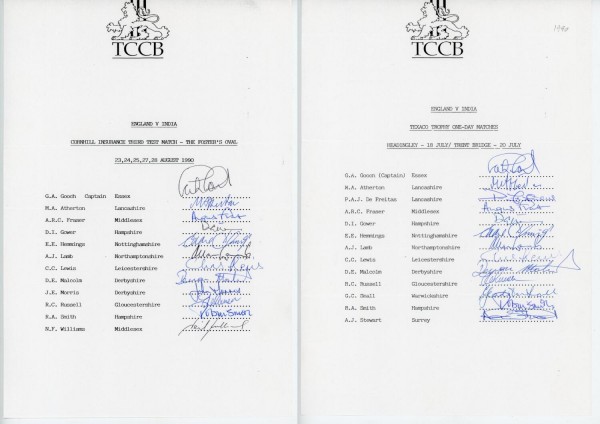 TCCB
ENGLAND V INDIA
CORNHILL INSURANCE THIRD TEST MATCH - THE FOSTER'S OVAL
23,24,25,27,28 AUGUST 1990
G.A. Gooch Captain Essex
M.A. Atherton Lancashire
A.R.C. Fraser Middlesex
D.I. Gower Hampshire
E.E. Hemmings Nottinghamshire
A.J. Lamb Northamptonshire
C.C. Lewis Leicestershire
D.E. Malcolm Derbyshire
J.E. Morris Derbyshire
R.C. Russell Gloucestershire
R.A. Smith Hampshire
N.F. Williams Middlesex
TCCB
1990
ENGLAND V INDIA
TEXACO TROPHY ONE-DAY MATCHES
HEADINGLEY - 18 JULY/ TRENT BRIDGE - 20 JULY
G.A. Gooch (Captain) Essex
M.A. Atherton Lancashire
P.A.J. De Freitas Lancashire
A.R.C. Fraser Middlesex
D.I. Gower Hampshire
E.E. Hemmings Nottinghamshire
A.J. Lamb Northamptonshire
C.C. Lewis Leicestershire
D.E. Malcolm Derbyshire
R.C. Russell Gloucestershire
G.C. Small Warwickshire
R.A. Smith Hampshire
A.J. Stewart Surrey